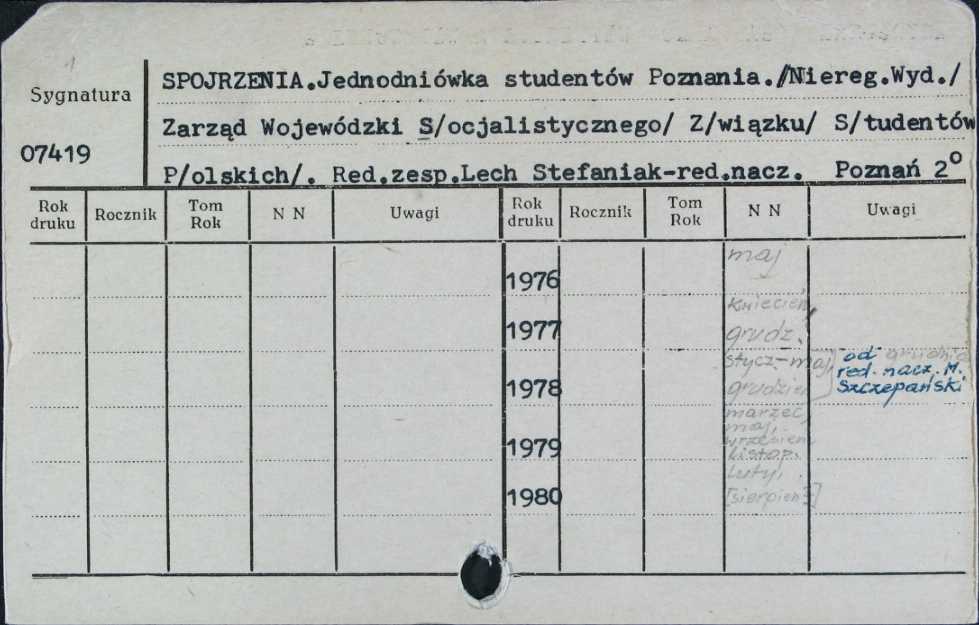 1
SPOJRZENIA.Jednodniówka studentów Poznania./Niereg.Wyd./
Sygnatura
Zarząd Wojewódzki S/ocjalistycznego/ Z/wiązku/ S/tudentów
07419
P/olskich/. Red.zesp.Lech Stefaniak-red.nacz. Poznań 2°
Rok druku Rocznik Tom Rok N N Uwagi Rok druku Rocznik Tom Rok N N Uwagi
maj
1976
kwiecień,
1977 grudz.
stycz-maj, od grudnia
red. nacz. M.
1978 grudzień Szczepański
marzec,
maj,
wrzesień
1979 listop.
luty,
1980 [sierpień]